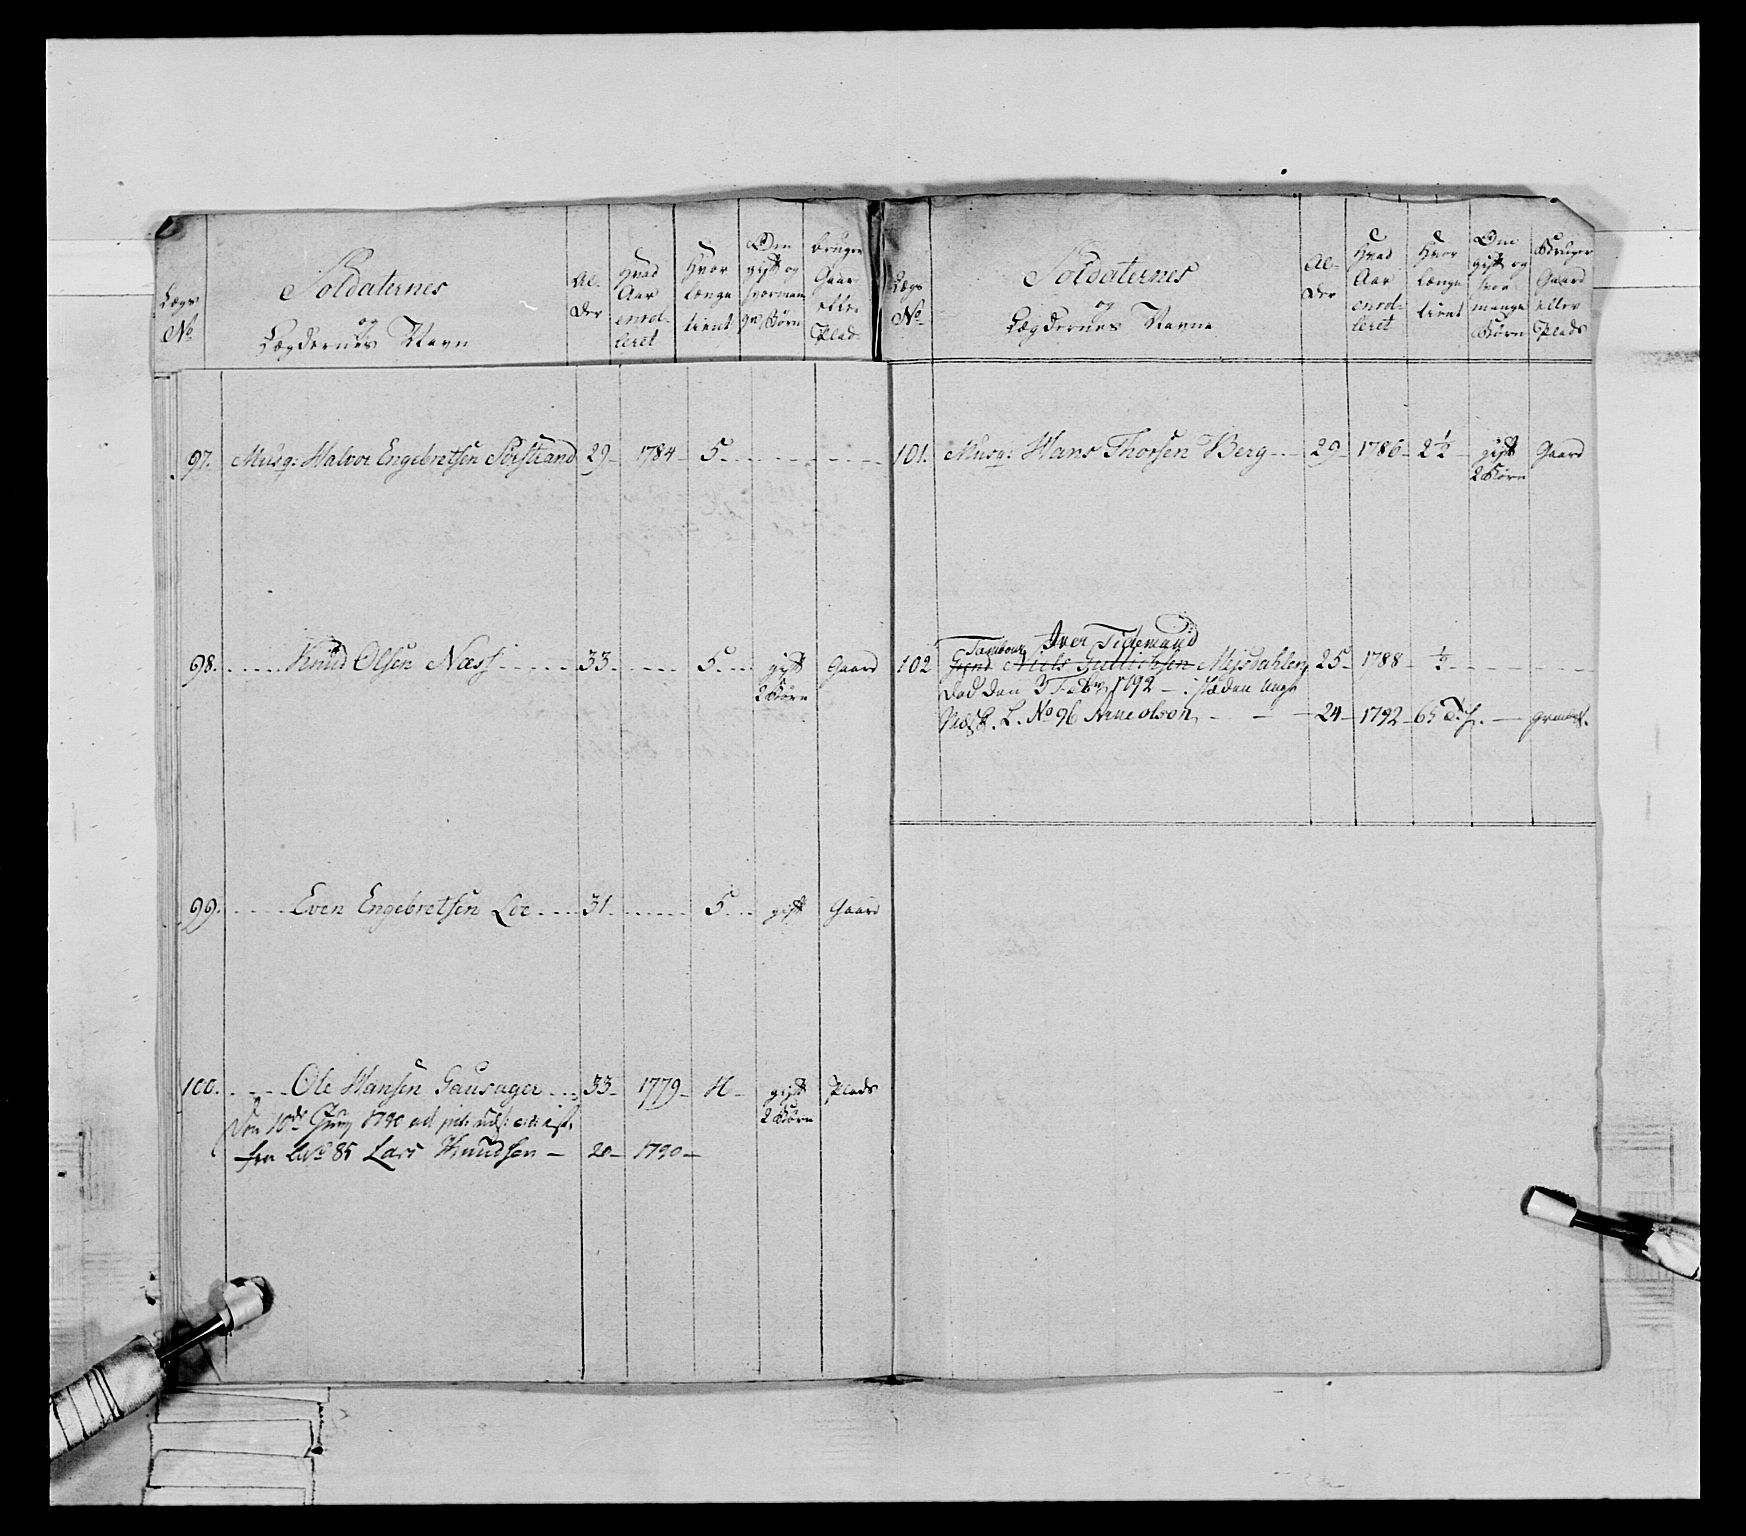 Lægs
No
Soldaternes
og
Lægdernes Navn
Al-
der
Hvad
Aar
enrol-
leret
Hvor
længe
tient
Om
gift og
hvorman
ge Børn
bruger
Gaar
eller
Plad
97. Musq: Halvor Engebretsen Sørstrand 29 1784 5
98. Knud Olsen Næss 33 5 gift Gaard
2 Børn
99. Even Engebretsen Loe 31 5 gift Gaard
100. Ole Hansen Gausager 33 1779 gift Plads
2 Børn
Den 10de 1790
fra 85 Lars Knudsen 20 1790
Lægs
No
Soldaternes
og
Lægdernes Navne
Al-
der
Hvad
Aar
enrol-
leret
Hvor
længe
tient
Om
gift og
hvor
mange
Børn
Bruger
Gaard
eller
Plads
101. Musq: Hans Thorsen Berg 29 1786 2½ gift Gaard
2 Børn
Tambour Iver Tidemand
102 Niels Gullichsen Mysdahlen 25 1788 ½
Død den 3 Feb 1792
L. No 96 Arne olson 24 1792